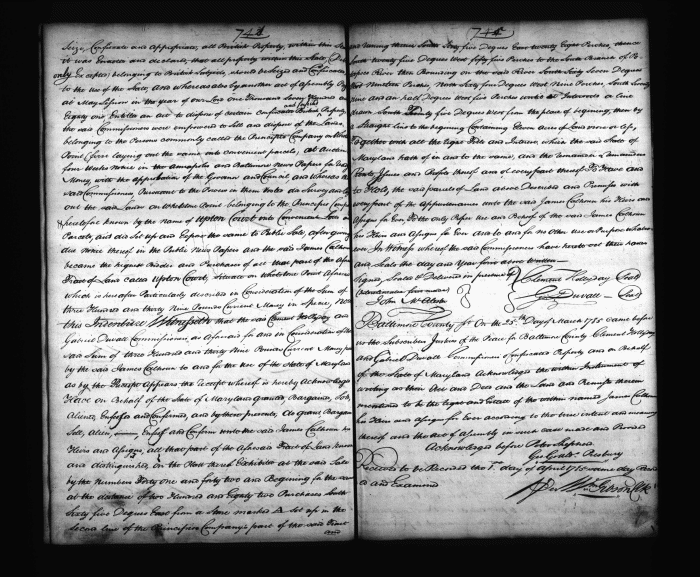 Seize, Confiscate and Appropriate, all British Property, within this State
it was Enacted and declared, that all property within this State (Debts
only Excepted) belonging to British Subjects, should be Seized and Confiscated
to the use of the State, and whereas also by another act of assembly Begun
at May Session in the year of our Lord one thousand Seven Hundred and
Eighty one Entitled an Act to dispose of certain confiscated British Property
the said Commissioners were empowered to Sell and dispose of the Lands
belonging to the Persons commonly called the Principio Company on Whetstone
Point (first laying out the same into convenient parcels) at auction
four Weeks notice in the Annapolis and Baltimore News Papers for
Money, with the approbation of the Governor and Council and Whereas the
said Commissioners Pursuant to the Powers in them Vested do Survey and lay
out the said Land on Whetstone Point belonging to the Principio Company
heretofore known by the name of Upton Court into Convenient Lots or
Parcels, and did Set up and Expose the same to Public Sale, after giving
due Notice thereof in the Public News Papers and the said James Calhoun
became the highest Bidder and Purchaser of all that part of the aforesaid
Tract of Land called Upton Court, Situate on Whetstone Point aforesaid
which is hereafter Particularly described in Consideration of the Sum of
three Hundred and thirty Nine Pounds Current Money in Specie, Now
this Indenture Witnesseth that the said Clement Hollyday and
Gabriel Duvall Commissioners as aforesaid for and in Consideration of the
said Sum of three Hundred and thirty Nine Pounds Current Money paid
by the said James Calhoun to and for the use of the State of Maryland
as by the Receipt Appears the receipt whereof is hereby Acknowledged
Have on Behalf of the State of Maryland granted Bargained, Sold,
Aliened, Enfeoffed and Confirmed, and by these presents, Do grant Bargain
Sell, Alien, Enfeoff and Confirm unto the said James Calhoun his
Heirs and Assigns, all that part of the aforesaid Tract of Land known
and distinguished, on the Plat thereof Exhibited at the said Sale
by the Numbers Forty one and forty two and Beginning for the same
at the distance of two Hundred and Eighty two Perches South
Sixty five Degrees East from a Stone marked A set up in the
second line of the Principio Company's part of the said Tract
and
and running thence South Sixty five Degrees East twenty Eight Perches, thence
South twenty five Degrees West fifty five Perches to the South Branch of
River then Bounding on the said River South Sixty Seven Degrees
West Nineteen Perches, North Sixty five Degrees West Nine Perches, South Seventy
nine and an half Degrees West five Perches until it Intersects a line
drawn South twenty five Degrees West from the place of beginning, then by
a Straight line to the beginning Containing Eleven acres of Land more or less,
Together with all the Right Title and Interest, which the said State of
Maryland hath of in and to the same, and the remainder and remainders
Rents, Issues and Profits thereof and of every part thereof To Have and
to Hold, the said parcels of Land above Described and Premises with
every part of the Appurtenances unto the said James Calhoun his Heirs and
Assigns for Ever, To the only Proper Use and Behoof of the said James Calhoun
his Heirs and Assigns for Ever and to and for no other Use or Purpose whatso-
ever. In Witness whereof the said Commissioners have hereto set their names
and Seals the day and Year first above written
Signed, Sealed & Delivered in presence of Clement Hollyday Seal
Gabriel Duvall Seal
Baltimore County Sct. On the 25th Day of March 1785 came before
the Subscriber Justices of the Peace for Baltimore County Clement Hollyday
and Gabriel Duvall Commissioners Confiscated Property and on Behalf
of the State of Maryland Acknowledged the within Instrument of
writing as their Act and Deed and the Land and Premises therein
mentioned to be the Right and Estate of the within named James Calhoun
his Heirs and Assigns for Ever according to the true intent and meaning
thereof and the Act of Assembly in such Case made and Provided
Acknowledged before Peter Shepherd
Geo. Goulds. Presbury
Received to be Recorded the 1. day of April 1785 same day Record-
ed and Examined
Wm. Gibson Clk